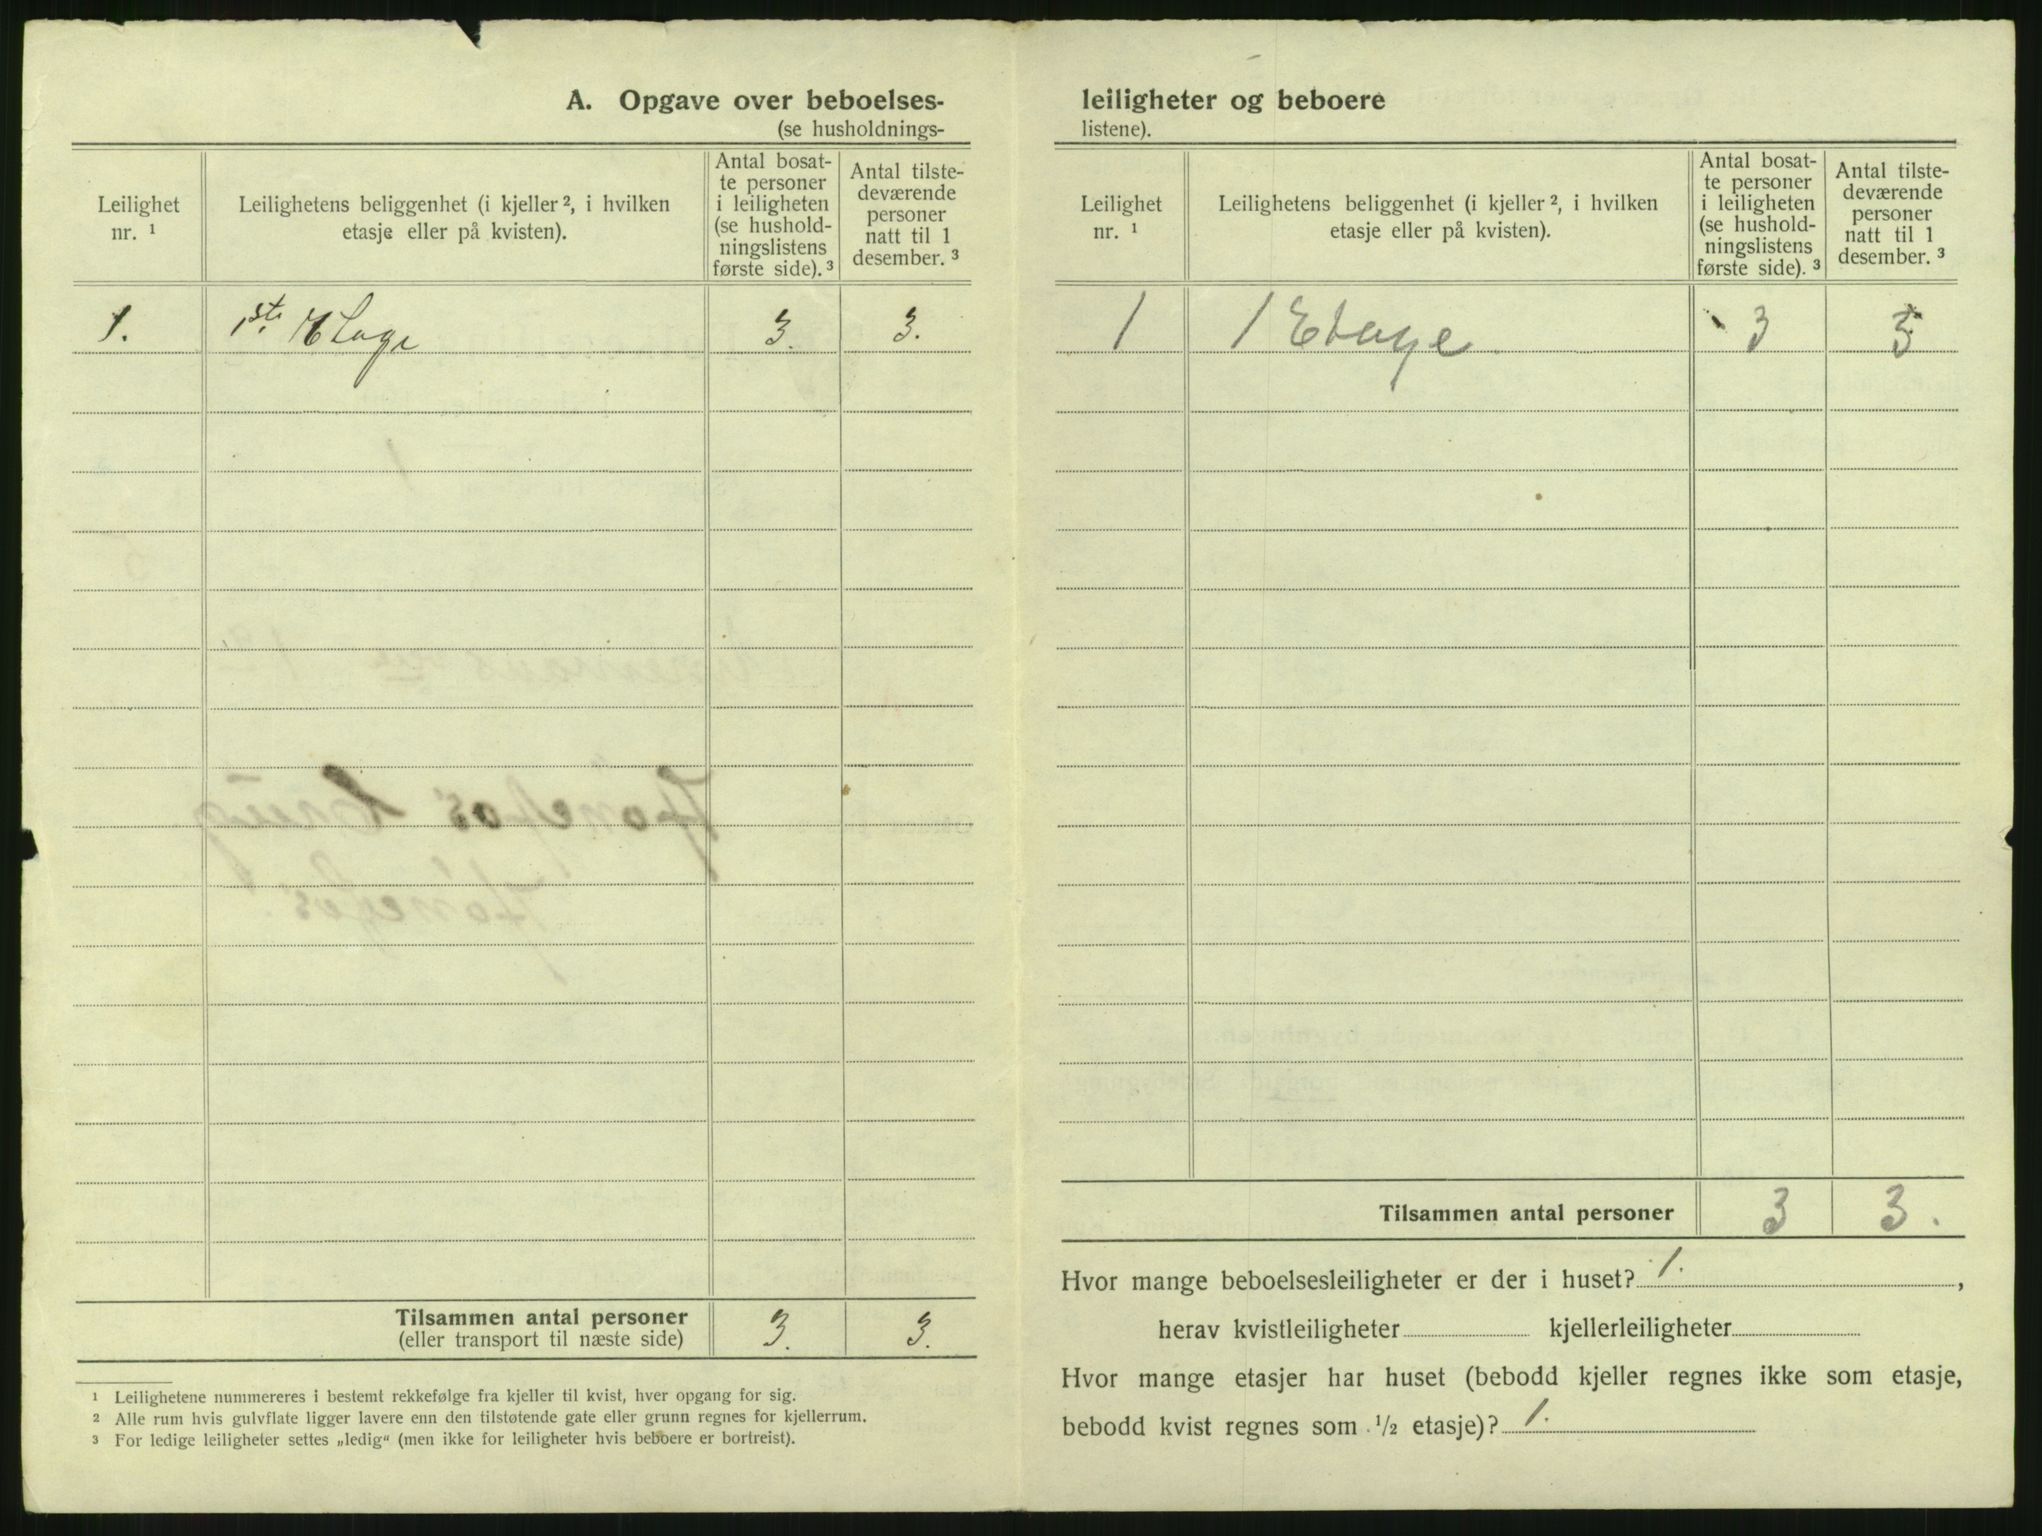 A. Opgave over beboelses-
(se husholdnings-
Leilighet nr. ¹
Leilighetens beliggenhet (i kjeller ², i hvilken
etasje eller på kvisten).
Antal bosat-
te personer
i leiligheten
(se hushold-
ningslistens
første side). ³
Antal tilste-
deværende
personer
natt til 1
desember. ³
1. 1ste Etage 3. 3.
Tilsammen antal personer 3. 3.
(eller transport til næste side)
¹ Leilighetene nummereres i bestemt rekkefølge fra kjeller til kvist, hver opgang for sig.
² Alle rum hvis gulvflate ligger lavere enn den tilstøtende gate eller grunn regnes for kjellerrum.
³ For ledige leiligheter settes „ledig“ (men ikke for leiligheter hvis beboere er bortreist).
leiligheter og beboere
listene).
Leilighet nr. ¹
Leilighetens beliggenhet (i kjeller ², i hvilken
etasje eller på kvisten).
Antal bosat-
te personer
i leiligheten
(se hushold-
ningslistens
første side). ³
Antal tilste-
deværende
personer
natt til 1
desember. ³
1 1 Etage 3 3
Tilsammen antal personer 3 3.
Hvor mange beboelsesleiligheter er der i huset? 1. ,
herav kvistleiligheter kjellerleiligheter
Hvor mange etasjer har huset (bebodd kjeller regnes ikke som etasje,
bebodd kvist regnes som ½ etasje)? 1.